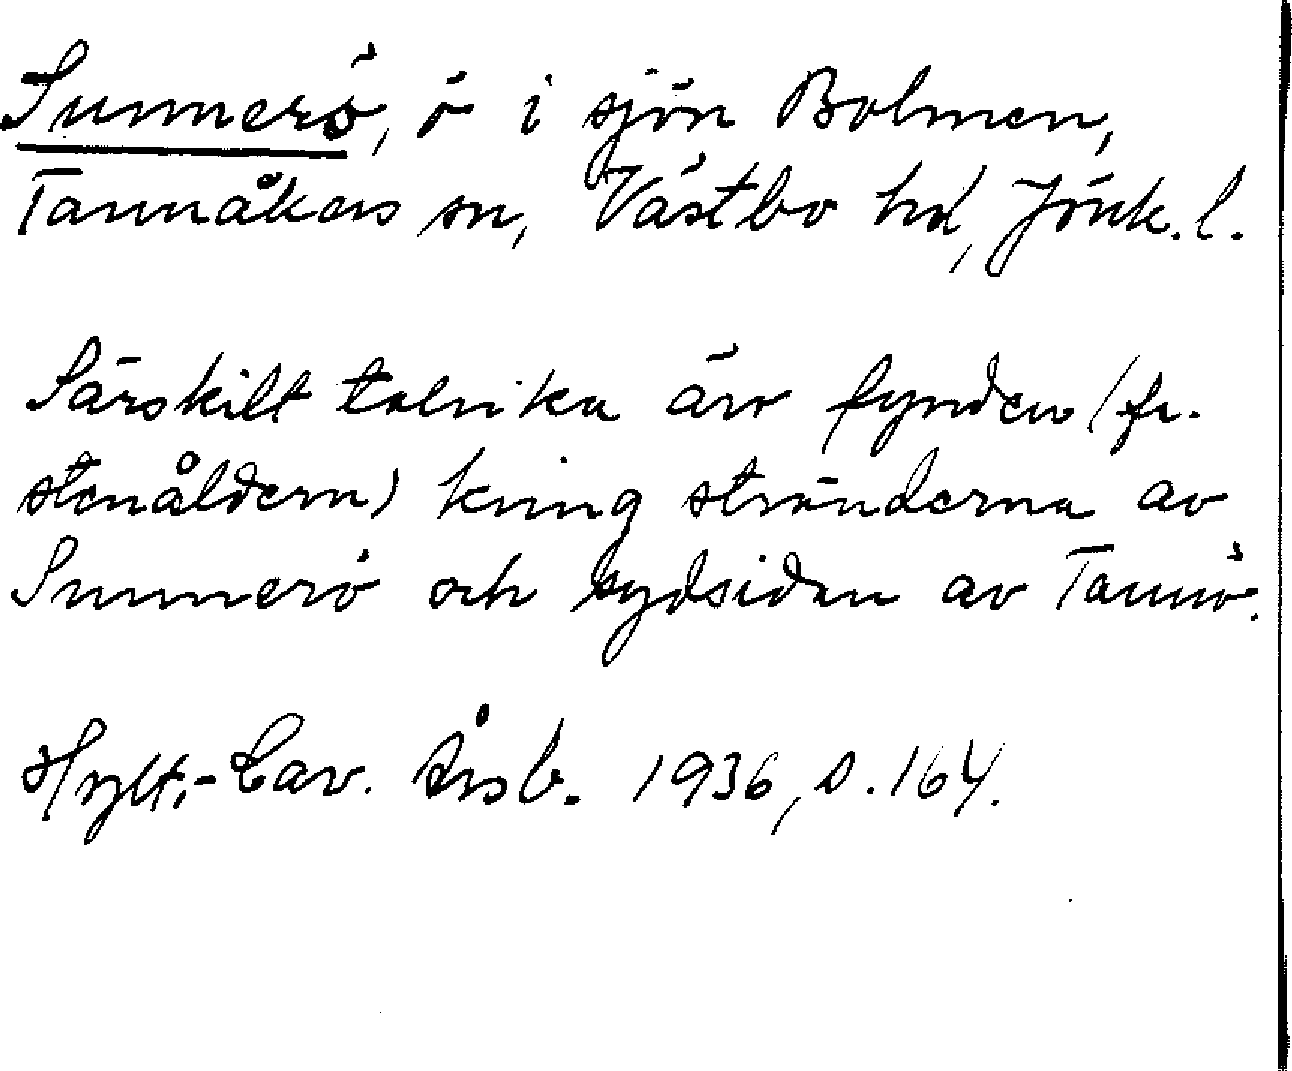 Sunnerö, ö i sjön Bolmen,
Tannåkers sn, Västbo hd, Jönk. l.
Särskilt talrika äro fynden (fr.
stenåldern) kring stränderna av
Sunnerö och sydsidan av Tannö.
Hylt.-Cav. Årsb. 1936, s. 164.